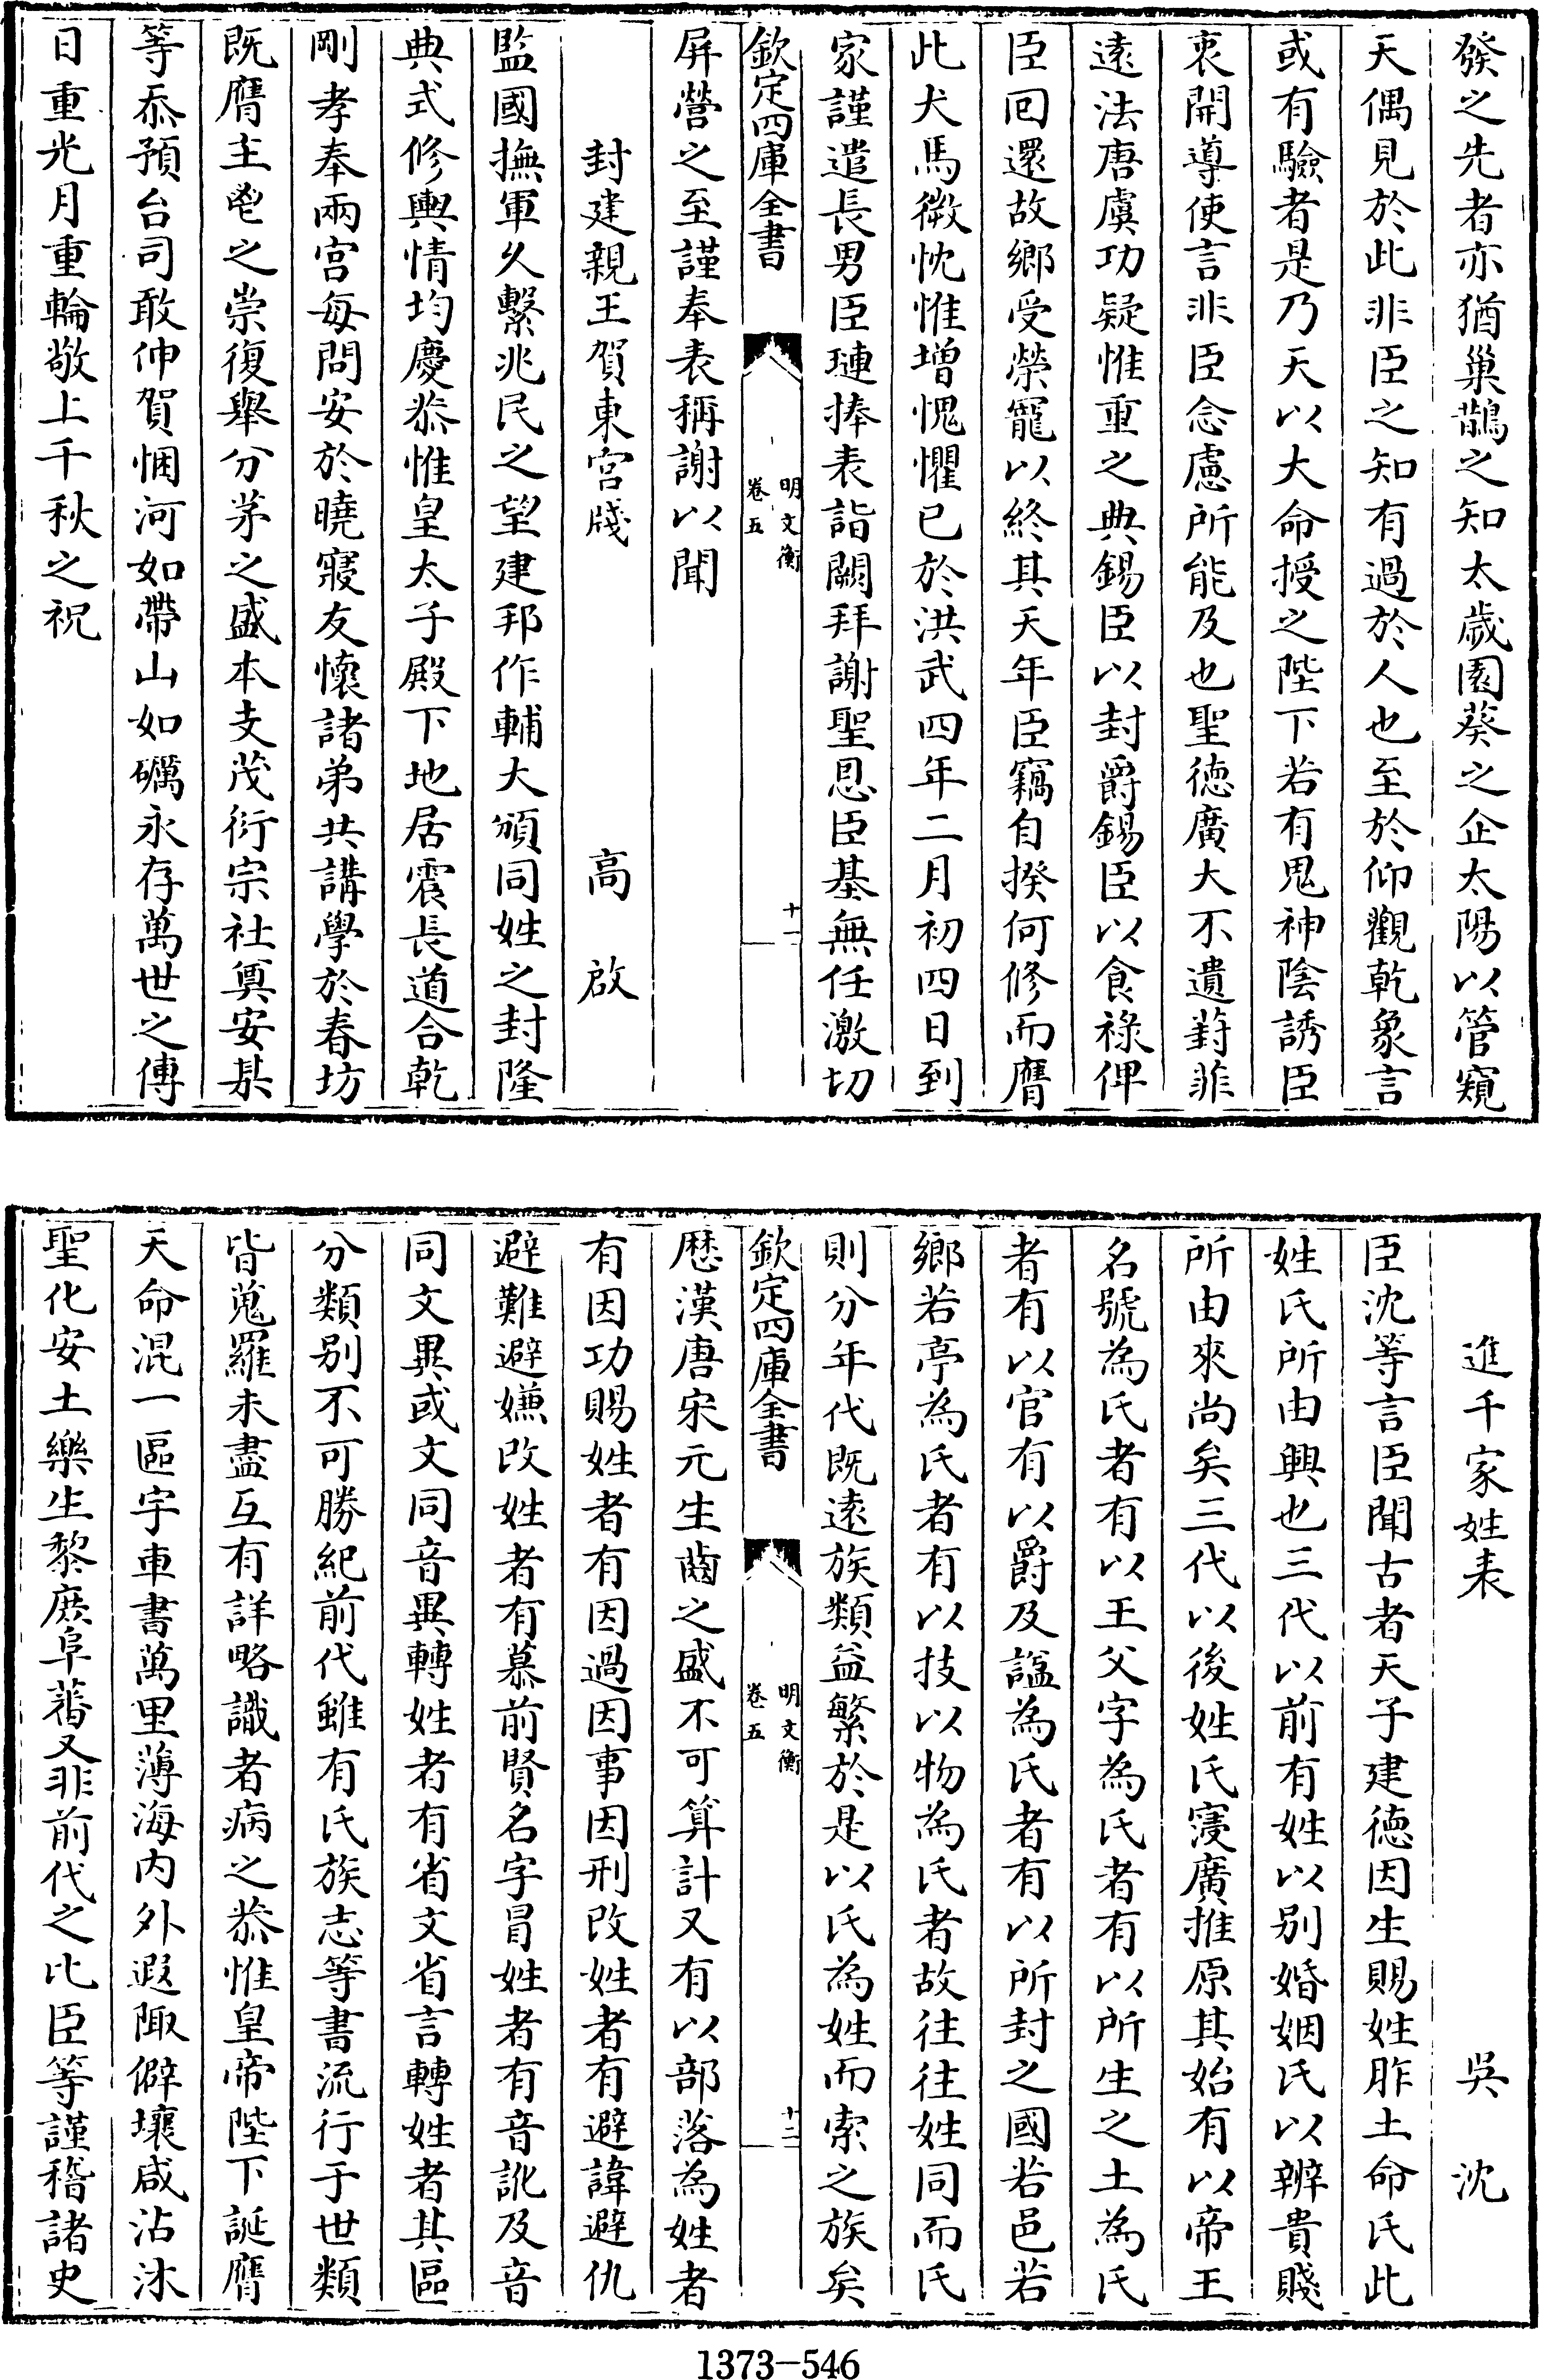 發之先者亦猶巢鵲之知太歲園葵之企太陽以管窺
天偶見於此非臣之知有過於人也至於仰觀乾象言
或有驗者是乃天以大命授之陛下若有鬼神陰誘臣
衷開導使言非臣念慮所能及也聖徳廣大不遺葑菲
逺法唐虞功疑惟重之典錫臣以封爵錫臣以食祿俾
臣回還故鄉受榮寵以終其天年臣竊自揆何修而膺
此犬馬微忱惟增愧懼已於洪武四年二月初四日到
家謹遣長男臣璉捧表詣闕拜謝聖恩臣基無任激切
欽定四庫全書
明文衡
卷五
十一
屏營之至謹奉表稱謝以聞
封建親王賀東宮牋
高啟
監國撫軍久繫兆民之望建邦作輔大頒同姓之封隆
典式修輿情均慶恭惟皇太子殿下地居震長道合乾
剛孝奉兩宮每問安於曉寢友懷諸弟共講學於春坊
既膺主鬯之崇復舉分茅之盛本支茂衍宗社奠安某
等忝預台司敢伸賀悃河如帶山如礪永存萬世之傳
日重光月重輪敬上千秋之祝
進千家姓表
吳沈
臣沈等言臣聞古者天子建徳因生賜姓胙土命氏此
姓氏所由興也三代以前有姓以别婚姻氏以辨貴賤
所由來尚矣三代以後姓氏寖廣推原其始有以帝王
名號為氏者有以王父字為氏者有以所生之土為氏
者有以官有以爵及諡為氏者有以所封之國若邑若
鄉若亭為氏者有以技以物為氏者故往往姓同而氏
則分年代既逺族類益繁於是以氏為姓而索之族矣
欽定四庫全書
明文衡
卷五
十二
厯漢唐宋元生齒之盛不可算計又有以部落為姓者
有因功賜姓者有因過因事因刑改姓者有避諱避仇
避難避嫌改姓者有慕前賢名字冒姓者有音訛及音
同文異或文同音異轉姓者有省文省言轉姓者其區
分類别不可勝紀前代雖有氏族志等書流行于世類
皆蒐羅未盡互有詳略識者病之恭惟皇帝陛下誕膺
天命混一區宇車書萬里薄海内外遐陬僻壤咸沾沐
聖化安土樂生黎庶阜蕃又非前代之比臣等謹稽諸史
1373-546